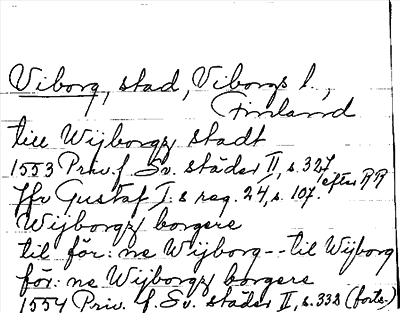 Viborg, stad, Viborgs l.,
Finland
till Wijborgz stadt
1553 Priv. f. Sv. städer II, s. 327
efter RR
Jfr Gustaf I:s reg. 24, s. 107.
Wijborgz borgere
til för:ne Wijborg -- til Wijborg
för:ne Wijborgz borgere
1554 Priv. f. Sv. städer II, s. 338 (forts.)